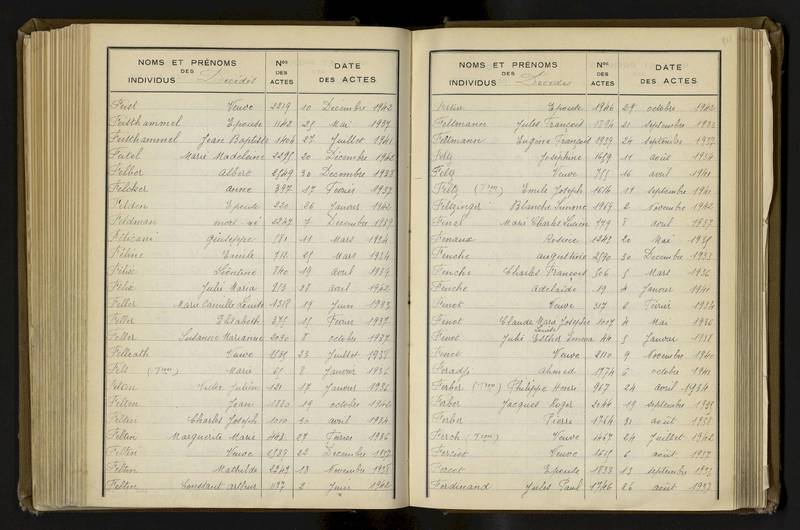 NOMS ET PRÉNOMS
DES
INDIVIDUS Décédés
Nos
DES
ACTES
DATE
DES ACTES
Feist Veuve 2219 10 Décembre 1942
Feisthammel Epouse 1142 25 Mai 1937
Feisthammel Jean Baptiste 1406 27 Juillet 1941
Marie Madeleine 20 Décembre 1942
Felber Albert 30 Décembre 1938
Felcker Anne 397 17 Février 1937
Felden Epouse 220 26 Janvier 1942
Feldman mort né 2247 7 Décembre 1939
Féliciani Giuseppe 11 Mars 1934
Féline Emile Mars 1934
Félix Léontine 840 19 avril 1939
Félix Julie Maria 813 28 avril 1942
Feller Marie Camille Louise 1318 19 Juin 1933
Feller Elisabeth Février 1937
Feller Susanne Marianne 2030 8 octobre 1937
Felleath Veuve 23 Juillet 1938
Fels Marie 8 Janvier 1936
Felten Julien 121 17 Janvier 1936
Felten Jean 1880 19 octobre 1942
Felten Charles Joseph 1010 30 avril 1934
Felten Marguerite Marie 27 Février 1936
Felten Veuve 22 Décembre 1937
Felten Mathilde 2249 13 Novembre 1938
Felten Constant Arthur 1137 2 Juin 1942
NOMS ET PRÉNOMS
DES
INDIVIDUS Décédés
Nos
DES
ACTES
DATE
DES ACTES
Epouse 1946 29 octobre 1942
Feltmann Jules François 21 septembre 1933
Feltmann Eugène François 1939 24 septembre 1937
Feltz Joséphine 1659 11 août 1934
Feltz Veuve 16 avril 1941
Feltz Emile Joseph 1616 11 septembre 1941
Feltzinger Blanche Simone 1969 2 Novembre 1942
Fenal Marie Charles Lucien 799 8 avril 1937
Fenaux Rosine 1243 20 Mai 1935
Fenche Augustine 2590 30 Décembre 1933
Fenche Charles François 506 5 Mars 1936
Fenche Adelaïde 19 4 Janvier 1941
Fenot Veuve 317 6 Février 1934
Fenot Claude Marie Josephe 1007 4 Mai 1936
Fenot Julie Esther 44 5 Janvier 1938
Fenot Veuve 2110 9 Novembre 1940
Feradji Ahmed 1774 6 octobre 1941
Ferber Philippe Henri 967 24 avril 1934
Ferber Jacques Roger 2044 19 septembre 1935
Ferber Pierre 1764 31 août 1938
Ferch Veuve 1467 24 Juillet 1942
Veuve 6 août 1937
Epouse 1833 13 septembre
Ferdinand Jules Paul 1746 26 août 1937